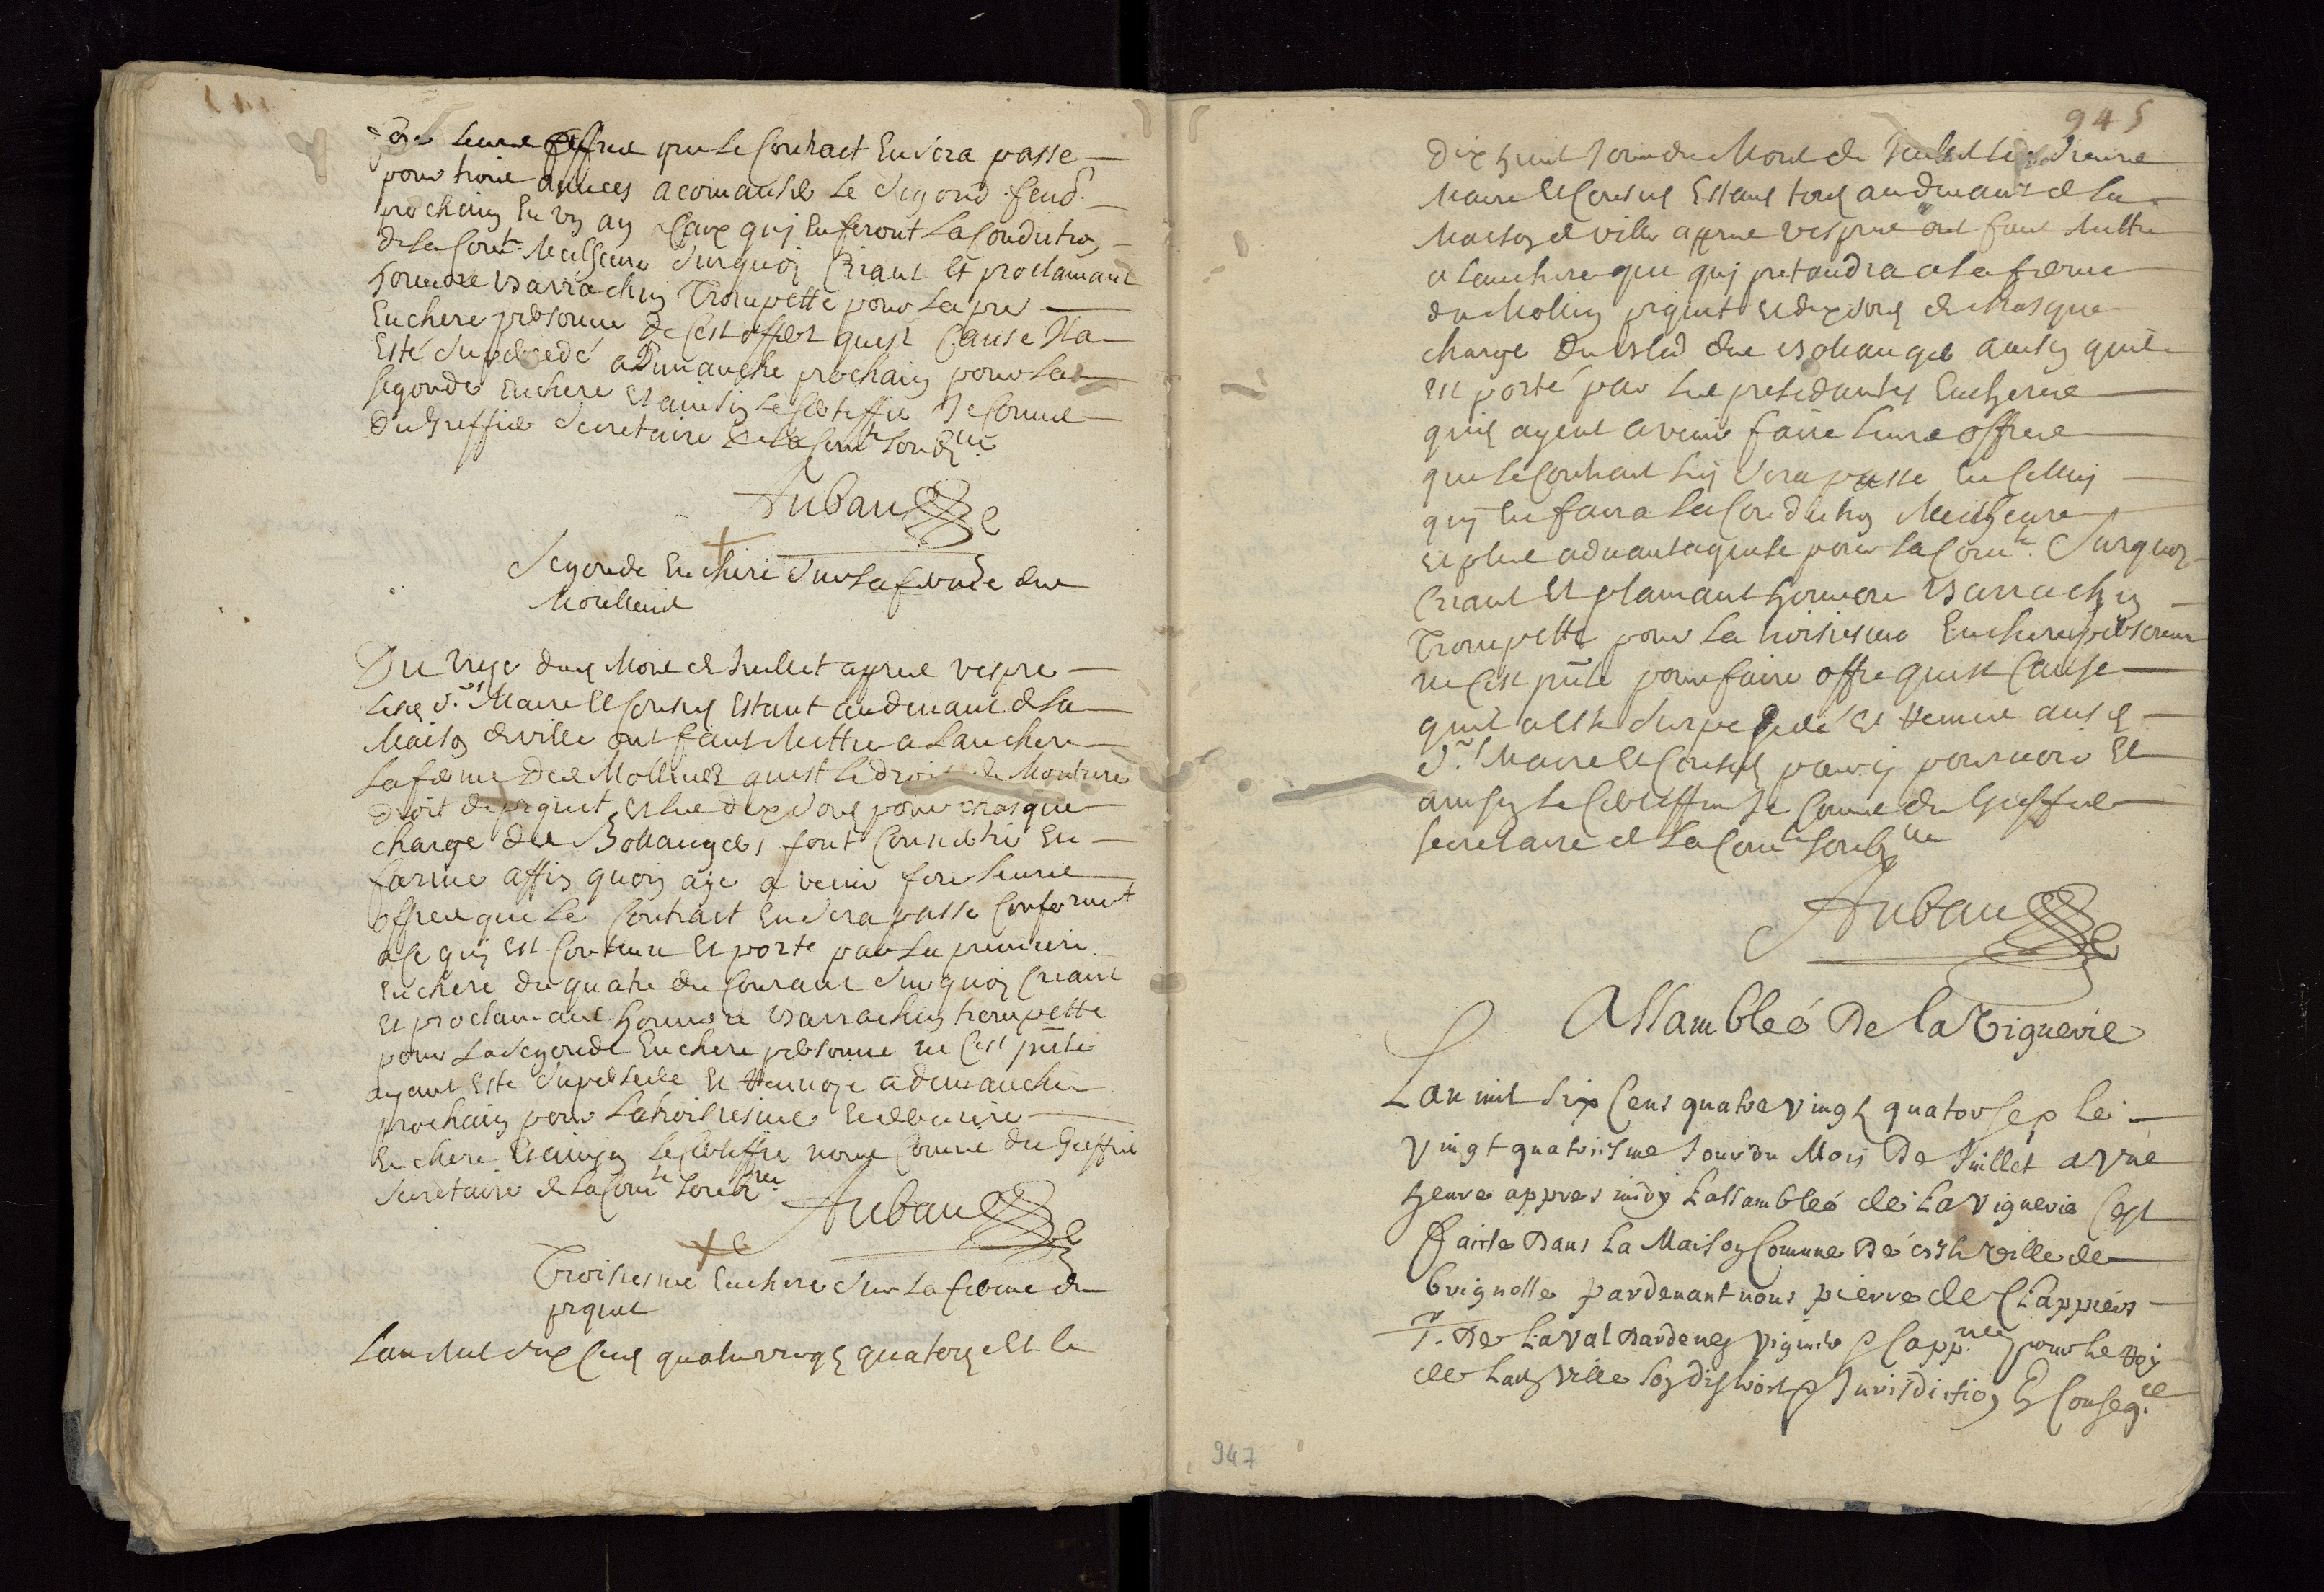 leurs offres que le contract en sera passe
pour trois annees a comanser le segond
prochain en un an a ceux quj en feront la condition
de la com.te Meilleure surquoi criant et proclamant
honnore Barrachin Trompette pour la pre
enchere personne
esté supersedé a Dimanche prochain pour la
segonde enchere et ainsin le certiffie Je comme
du Greffier secretaire de la com.te soub.ne
Aubau
Segonde enchere sur la ferme des
Moullins
Du unze dud. Mois de Juillet apprès vespre
lesd. s.rs Maire et Consuls estant au devant de la
Maison de ville ont faict Mettre a lanchere
la ferme des Mollins quest le droit de Mouture
droit de piquet et les dix sous pour chasque
charge des Bollangers font conuertir en
farine affin quon aye a venir fere leurs
offres que le contract en sera passe conforment
a ce quj est contenu et porte par la premiere
enchere du quatre du courant surquoj criant
et proclamant honnore Barrachin trompette
pour la segonde enchere personne ne cest pnte
ayant este supersede et renvoye a dimanche
prochain pour la troisiesme et derniere
enchere et ainsin le certiffie nous comme du Greffier
secretaire de la com.te soub.ne
Aubau
Troisiesme enchere sur la ferme du
piquet
Lan Mil six cens quatre vingts quatorse et le
945
dix huit Jour du Mois de Juillet les sieurs
Maire et Consuls estant tous au devant de la
Maison de ville apprès vespres ont faict Mettre
a lanchere que quj pretandra a la ferme
du Mollin piquet et dix sous de chasque
charge du bled des Bollanger ainsin quil
est porté par les presedantes encheres
quils ayent a venir faire leurs offres
que le contract luj sera passe en celluj
quj en faira la condition Meilheure
et plus aduantageuse pour la com.te Surquoj
criant et plamant honnore Barrachin
Trompette pour la troisiesme enchere personne
ne cest pnte pour faire offre quest cause
quil a este supersedé et remis ausd.
s.rs Maire et Consuls pour y pouruoir et
ainsin le certiffie Je comme du Greffier
secretaire de la com.te soub.ne
Aubau
Assambleé De la Viguerie
Lan mil six cens quatre vingts quatorse & le
vingt quatriesme Jour du Mois De Juillet a vne
heure appres midy Lassambleé de La viguerie cest
faicte Dans La Maison Commune De ceste ville de
Brignolle pardeuant nous pierre de Clappiers
S.r De Laval Dardenes viguier & capp.ne pour le Roy
de lad. ville son distroit & Jurisdiction En Conseq.ce
947